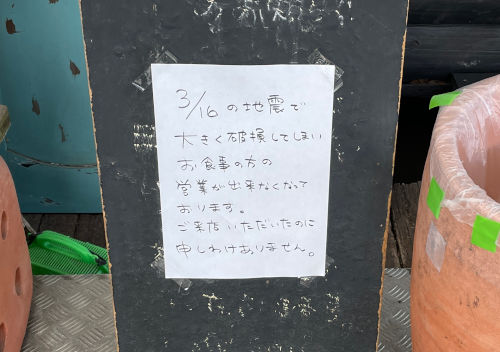 3/16の地震で
大きく破損してしまい
お食事の方の
営業が出来なくなって
おります。
ご来店いただいたのに
申しわけありません。